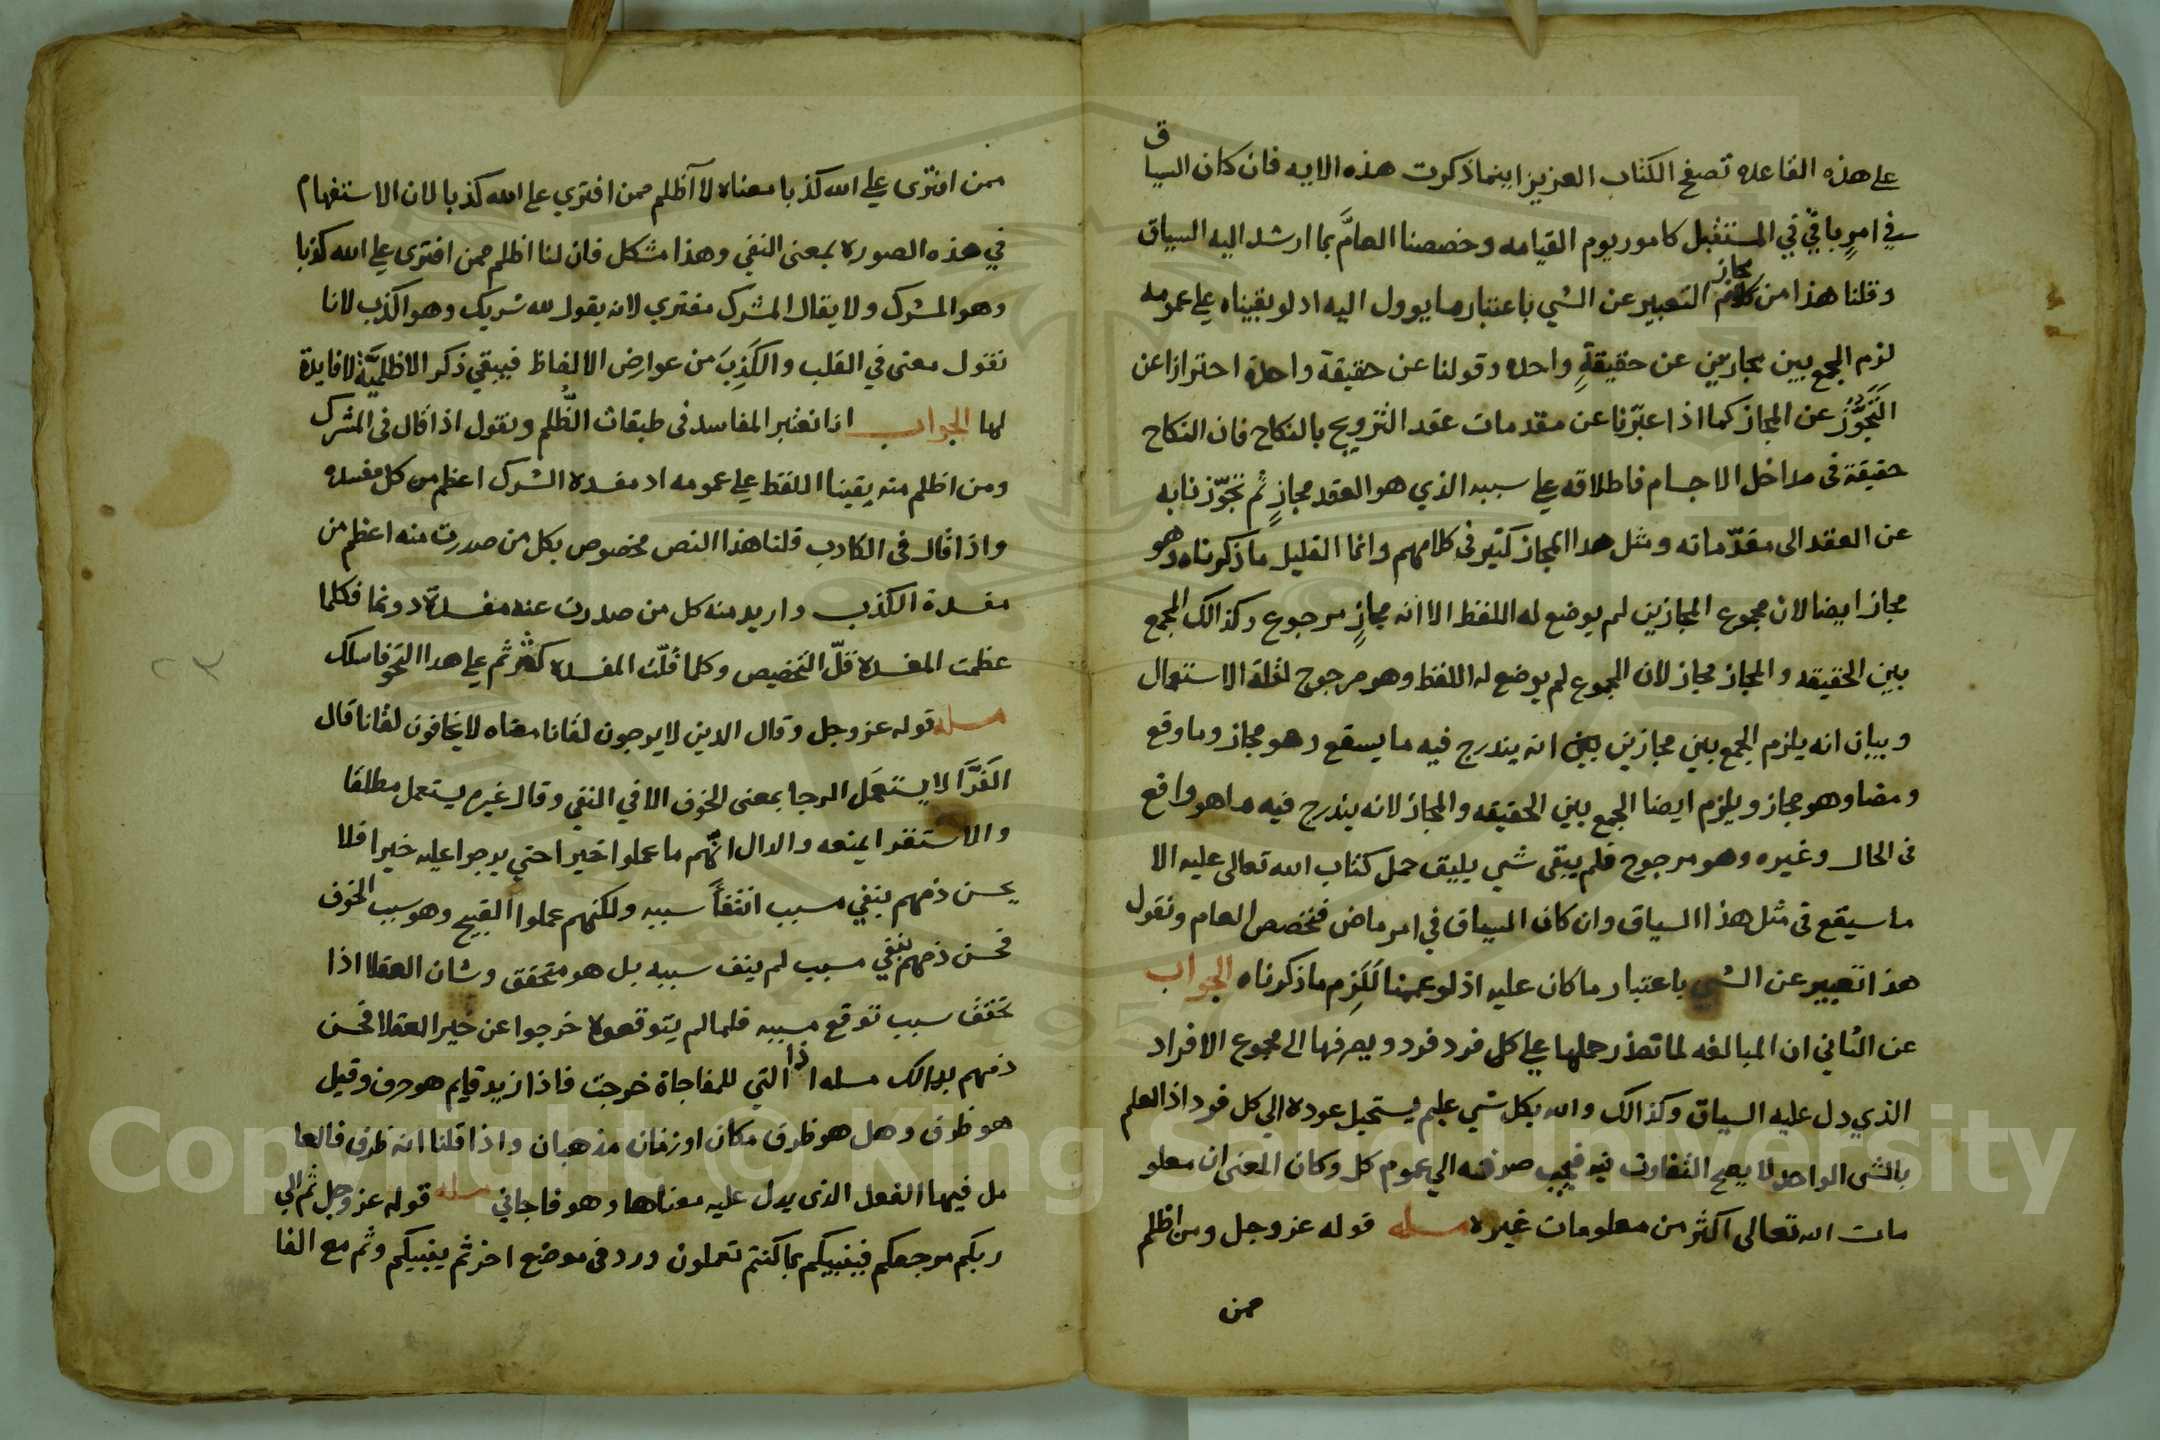 على هذه القاعده تصفح الكتاب العزيز اينما ذكرت هذه الايه فان كان السياق
في امرٍ ياتي في المستقبل كامور يوم القيامه وخصصنا العامَّ بما ارشد اليه السياق
وقلنا هذا من مجاز التعبير عن الشي باعتبار ما يوول اليه اذ لو بقيناه على عمومه
لزم الجمع بين مجازين عن حقيقةٍ واحده وقولنا عن حقيقة واحدة احترازا عن
التَجَوُّز عن المجاز كما اذا عبّرنا عن مقدمات عقد التزويج بالنكاح فان النكاح
حقيقة فى مداخل الاجسام فاطلاقه على سببه الذي هو العقد مجازٍ ثم تجوّزنا به
عن العقد الى مقدّماته ومثل هدا المجاز كثير فى كلامهم وانما القليل ما ذكرناه وهو
مجاز ايضا لان مجموع المجازين لم يوضع له اللفظ الا انه مجازٍ مرجوع وكذالك الجمع
بين الحقيقه والمجاز مجاز لان المجموع لم يوضع له اللفظ وهو مرجوح لقلة الاستعمال
وبيان انه يلزم الجمع بين مجازين بين انه يندرج فيه ما يسقع وهو مجاز وما وقع
ومضا وهو مجاز ويلزم ايضا الجمع بين الحقيقه والمجاز لانه يندرج فيه ما هو واقع
فى الحال وغيره وهو مرجوح فلم يبقى شي يليق حمل كتاب الله تعالى عليه الا
ما سيقع فى مثل هذا السياق وان كان السياق في امر ماض فنخصص العام ونقول
هذا تعبير عن الشي باعتبار ما كان عليه اذ لو عممنا لَلَزِم ما ذكرناه الجواب
عن الثاني ان المبالغه لما تعذر حملها على كل فرد فرد ويصرفها الى مجموع الافراد
الذي دل عليه السياق وكذالك والله بكل شي عليم يستحيل عوده الي كل فرد اذ العلم
بالشى الواحد لا يصح التفاوت فيه فيجب صرفه الي عموم كل وكان المعنى ان معلو
مات الله تعالى اكثر من معلومات غيره مسله قوله عز وجل ومن اظلم
ممن
ممن افترى على الله كذبا معناه لا أظلم ممن افتري على الله كذبا لان الاستفهام
في هذه الصوره بمعنى النفي وهذا مشكل فان لنا اظلم ممن افترى على الله كذبا
وهو المشرك ولا يقال المشرك مفتري لانه يقول لله شريك وهو الكذب لانا
نقول معنى في القلب والكَذِبَ من عوارض الالفاظ فيبقي ذكر الاظلميَّة لا فايدة
لها الجواب انا نعتبر المفاسد فى طبقات الظُّلم ونقول اذا قال فى المشرك
ومن اظلم منه بقينا اللفظ على عمومه اذ مفسدة الشرك اعظم من كل مفسده
واذا قال فى الكاذب قلنا هذا النص مخصوص بكل من صدرت منه اعظم من
مفسدة الكذب واريد منه كل من صدرت عنه مفسدة دونها فكلما
عظمت المفسدة قلّ التخصيص وكلما قلّت المفسدة كَثُر ثم على هدا النحو فاسلك
مسله قوله عز وجل وقال الدين لا يرجون لقانا معناه لا يخافون لقانا قال
الفَرَّا لا يستعمَل الرجا بمعنى الخوف الا في النفي وقال غيره يستعمل مطلقا
والاستقرا يمنعه والدال انّهم ما عملوا خيرا حتي يرجوا عليه خيرا فلا
يحسن ذمهم بنفي مسبب انتفاً سببه ولكنهم عملوا القبيح وهو سبب الخوف
فحسن ذمهم بنفي مسبب لم ينف سببه بل هو متحقق وشان العقلا اذا
تحقق سبب توقع مسببه فلما لم يتوقعوه خرجوا عن حيز العقلا فحسن
ذمهم بدالك مسله اذا التي للمفاجاة خرجت فاذا زيد قايم هو حرف وقيل
هو ظرف وهل هو ظرف مكان او زمان مذهبان واذا قلنا انه ظرف فالعا
مل فيها الفعل الذى يدل عليه معناها وهو فاجاني مسله قوله عز وجل ثم الي
ربكم مرجعكم فينبيكم بما كنتم تعملون ورد فى موضع اخر ثم ينبيكم وثم مع الفا
٢٣
Copyright © King Saud University
1957